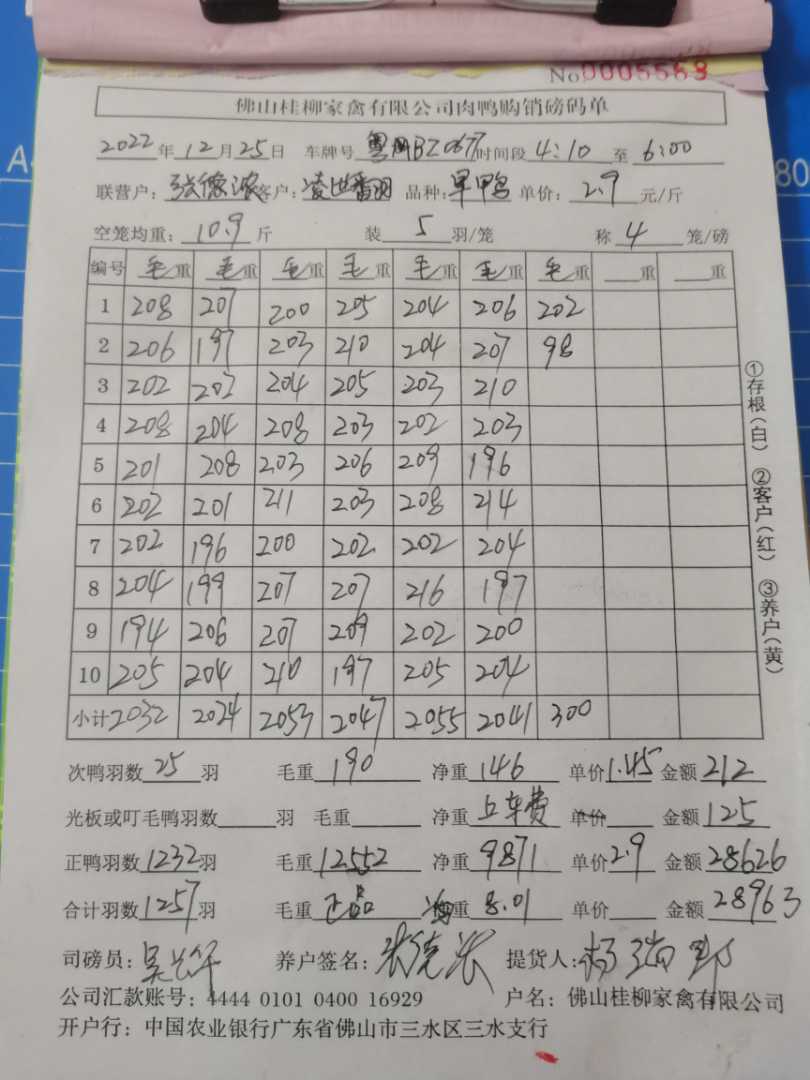 No 0005569
佛山桂柳家禽有限公司肉鸭购销磅码单
2022年 12月 25日 车牌号 粤 BZ0677 时间段 4:10 至 6:00
联营户: 张德浓 客户: 凌世 品种: 旱鸭 单价: 2.9 元/斤
空笼均重: 10.9 斤 装 5 羽/笼 称 4 笼/磅
编号 毛重 毛重 毛重 毛重 毛重 毛重 毛重 重 重
1 208 207 200 205 204 206 202
2 206 197 203 210 204 207 98
3 202 202 204 205 203 210
4 208 204 208 203 202 203
5 201 208 203 206 209 196
6 202 201 211 203 208 214
7 202 196 200 202 202 204
8 204 199 207 207 216 197
9 194 206 207 209 202 200
10 205 204 210 197 205 204
小计 2032 2024 2053 2047 2055 2041 300
次鸭羽数 25 羽 毛重 190 净重 146 单价 1.45 金额 212
光板或叮毛鸭羽数 羽 毛重 净重 车费 单价 金额 125
正鸭羽数 1232 羽 毛重 12552 净重 9871 单价 2.9 金额 28626
合计羽数 1257 羽 毛重 正品 重 8.01 单价 金额 28963
司磅员: 吴 养户签名: 张德浓 提货人: 杨
公司汇款账号: 4444 0101 0400 16929 户名: 佛山桂柳家禽有限公司
开户行: 中国农业银行广东省佛山市三水区三水支行
①存根(白) ②客户(红) ③养户(黄)
80